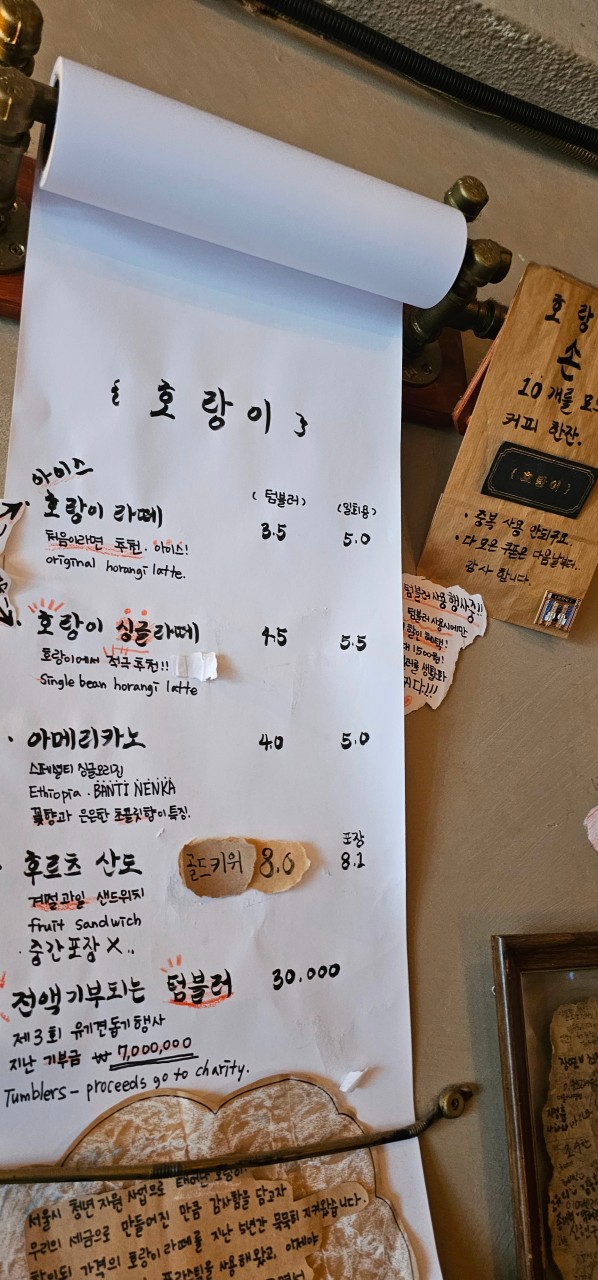 { 호랑이 }
아이스
( 텀블러 ) (일회용)
· 호랑이 라떼 3.5 5.0
처음이라면 추천. 아이스!
original horangi latte.
호랑이 싱글라떼 4.5 5.5
호랑이에서 적극 추천!!
Single bean horangi latte
· 아메리카노 4.0 5.0
스페셜티 싱글오리진
Ethiopia . BANTI NENKA
꽃향과 은은한 초콜릿향이 특징.
포장
· 후르츠 산도 골드키위 8.0 8.1
계절과일 샌드위치
fruit sandwich
· 중간포장 X..
전액기부되는 텀블러 30.000
제3회 유기견돕기행사
지난 기부금 ₩ 7,000,000
Tumblers - proceeds go to charity.
서울시 청년 지원 사업으로 태어난 호랑이.
우리의 세금으로 만들어진 만큼 감사함을 담고자
가격의 호랑이 라떼를 지난 5년간 묵묵히 지켜왔습니다.
사용해왔고, 이제야
호랑
손
10개를 모
커피 한잔.
{ 호랑이 }
· 중복 사용 안되구요.
· 다 모은 쿠폰은 다음날부터..
감사 합니다.
텀블러 사용 행사중!!
텀블러 사용시에만
할인 혜택!
1500원!
생활화